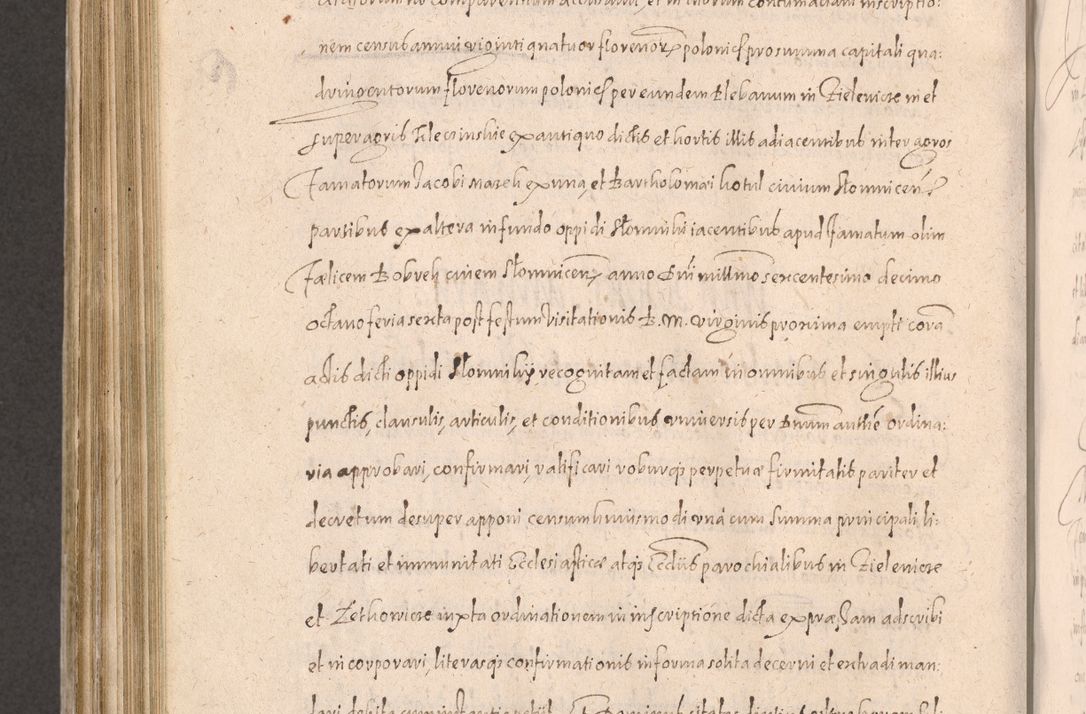 nem census annui viginti quatuor florenor polonic pro summa capitali qua:
dringentorum florenorum polonic per eundem Plebanum in Zielenicze in et
super agris Tileczinskie ex antiquo dictis et hortis illis adiacentibus inter agros
Famatorum Jacobi Mazek ex una, et Bartholomæi Kotul civium Slomnicen
partibus ex altera in fundo oppidi Slomniki iacentibus apud Famatum olim
Fælicem Bobrek civem Slomnicen anno Dni millmo sexcentesimo decimo
octavo feria sexta post festum Visitationis B. M. virginis proxima empti corā
actis dicti oppidi Slomniky recognitam et factam in omnibus et singulis illius
punctis, clausulis, articulis, et conditionibus universis per Dnum authē ordina:
ria approbari, confirmari, ratificari roburq perpetuæ firmitatis pariter et
decretum desuper apponi censum huiusmodi unā cum summa principali, li:
bertati et immunitati Ecclesiasticæ atq Ecclīis parochialibus in Zielenicze
et Zethowicze iuxta ordinationem in inscriptione dicta expræssam adscribi
et incorporari, literasq confirmationis in forma solita decerni et extradi man: